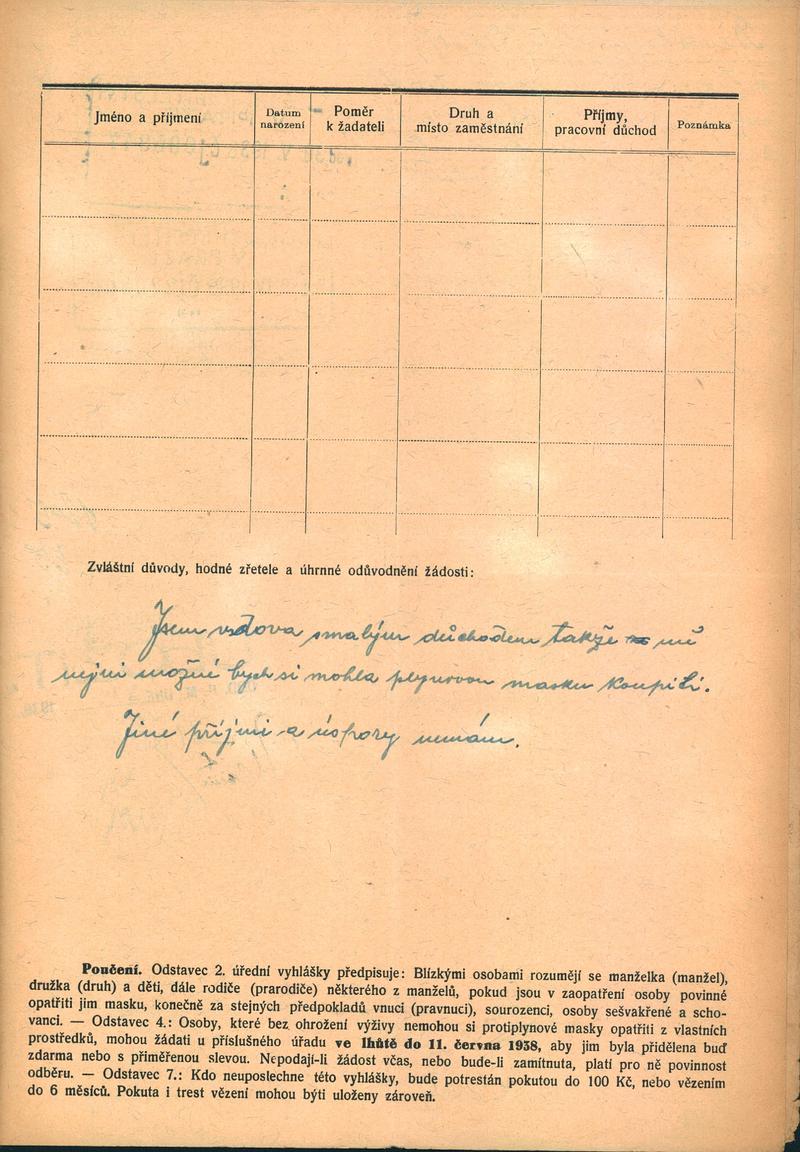 Jméno a příjmení
Datum narození
Poměr k žadateli
Druh a místo zaměstnání
Příjmy, pracovní důchod
Poznámka
Zvláštní důvody, hodné zřetele a úhrnné odůvodnění žádosti:
Jsem vdova smalým důchodem takže mě
nejni možné bych si mohla plynovou masku koupiti.
Jiné příjmi a úspory nemám.
Poučení. Odstavec 2. úřední vyhlášky předpisuje: Blízkými osobami rozumějí se manželka (manžel),
družka (druh) a děti, dále rodiče (prarodiče) některého z manželů, pokud jsou v zaopatření osoby povinné
opatřiti jim masku, konečně za stejných předpokladů vnuci (pravnuci), sourozenci, osoby sešvakřené a scho-
vanci. — Odstavec 4.: Osoby, které bez ohrožení výživy nemohou si protiplynové masky opatřiti z vlastních
prostředků, mohou žádati u příslušného úřadu ve lhůtě do 11. června 1938, aby jim byla přidělena buď
zdarma nebo s přiměřenou slevou. Nepodají-li žádost včas, nebo bude-li zamítnuta, platí pro ně povinnost
odběru. — Odstavec 7.: Kdo neuposlechne této vyhlášky, bude potrestán pokutou do 100 Kč, nebo vězením
do 6 měsíců. Pokuta i trest vězení mohou býti uloženy zároveň.